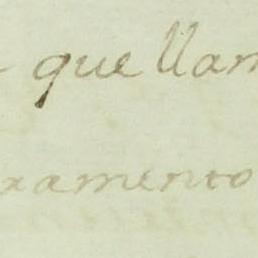 que llam
ramento